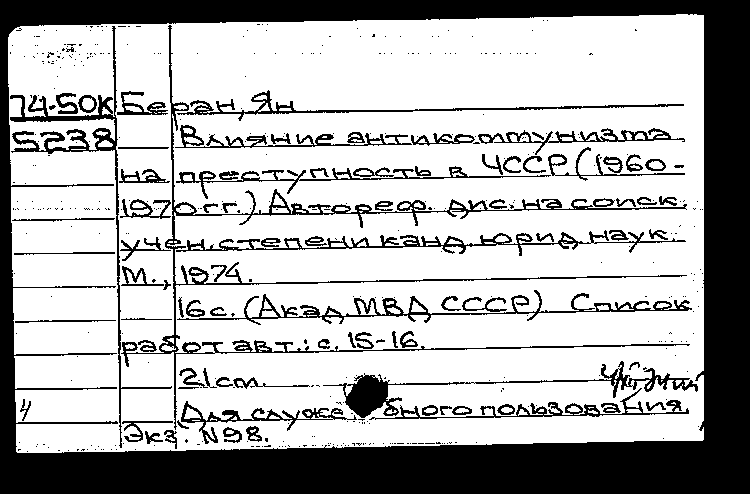 74-50К Беран, Ян
5238 Влияние антикоммунизма
на преступность в ЧССР (1960-
1970 гг.). Автореф. дис. на соиск.
учен. степени канд. юрид. наук.
М., 1974.
16 с. (Акад. МВД СССР) Список
работ авт.: с. 15-16.
21 cm.
4 Для служебного пользования.
Экз. N98.